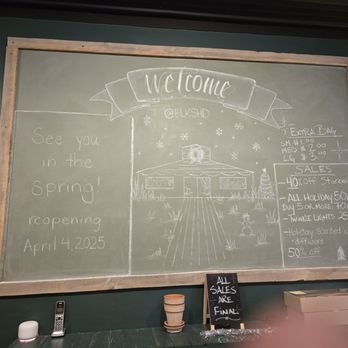 Welcome
@BLKSHD
See you
in the
Spring!
reopening
April 4, 2025
EXTRA BAG
SM # 1
MED $ 2.00 1
LG $ 3.00 1
SALES
40% Off
ALL HOLIDAY
TWINKLE LIGHTS 25
Holiday Scented
diffusers
50% off
ALL
SALES
ARE
FINAL